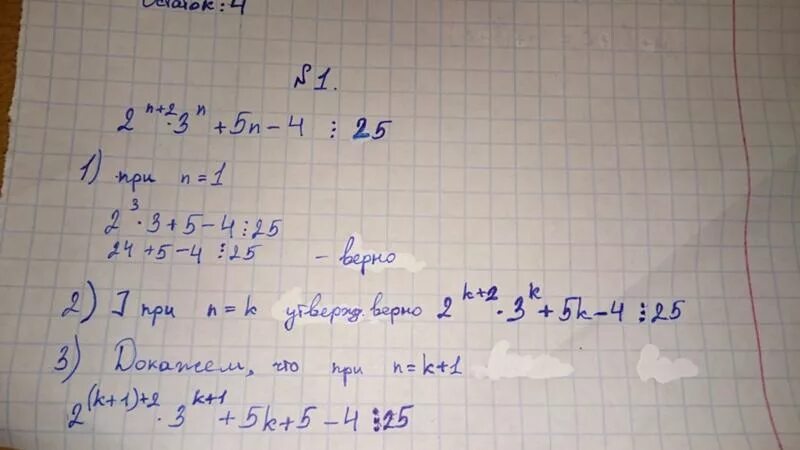 Остаток: 4
№1.
2^{n+2} · 3^n + 5n – 4 ⋮ 25
1) при n = 1
2^3 · 3 + 5 – 4 ⋮ 25
24 + 5 – 4 ⋮ 25 – верно
2) ] при n = k утвержд. верно 2^{k+2} · 3^k + 5k – 4 ⋮ 25
3) Докажем, что при n = k+1
2^{(k+1)+2} · 3^{k+1} + 5k + 5 – 4 ⋮ 25